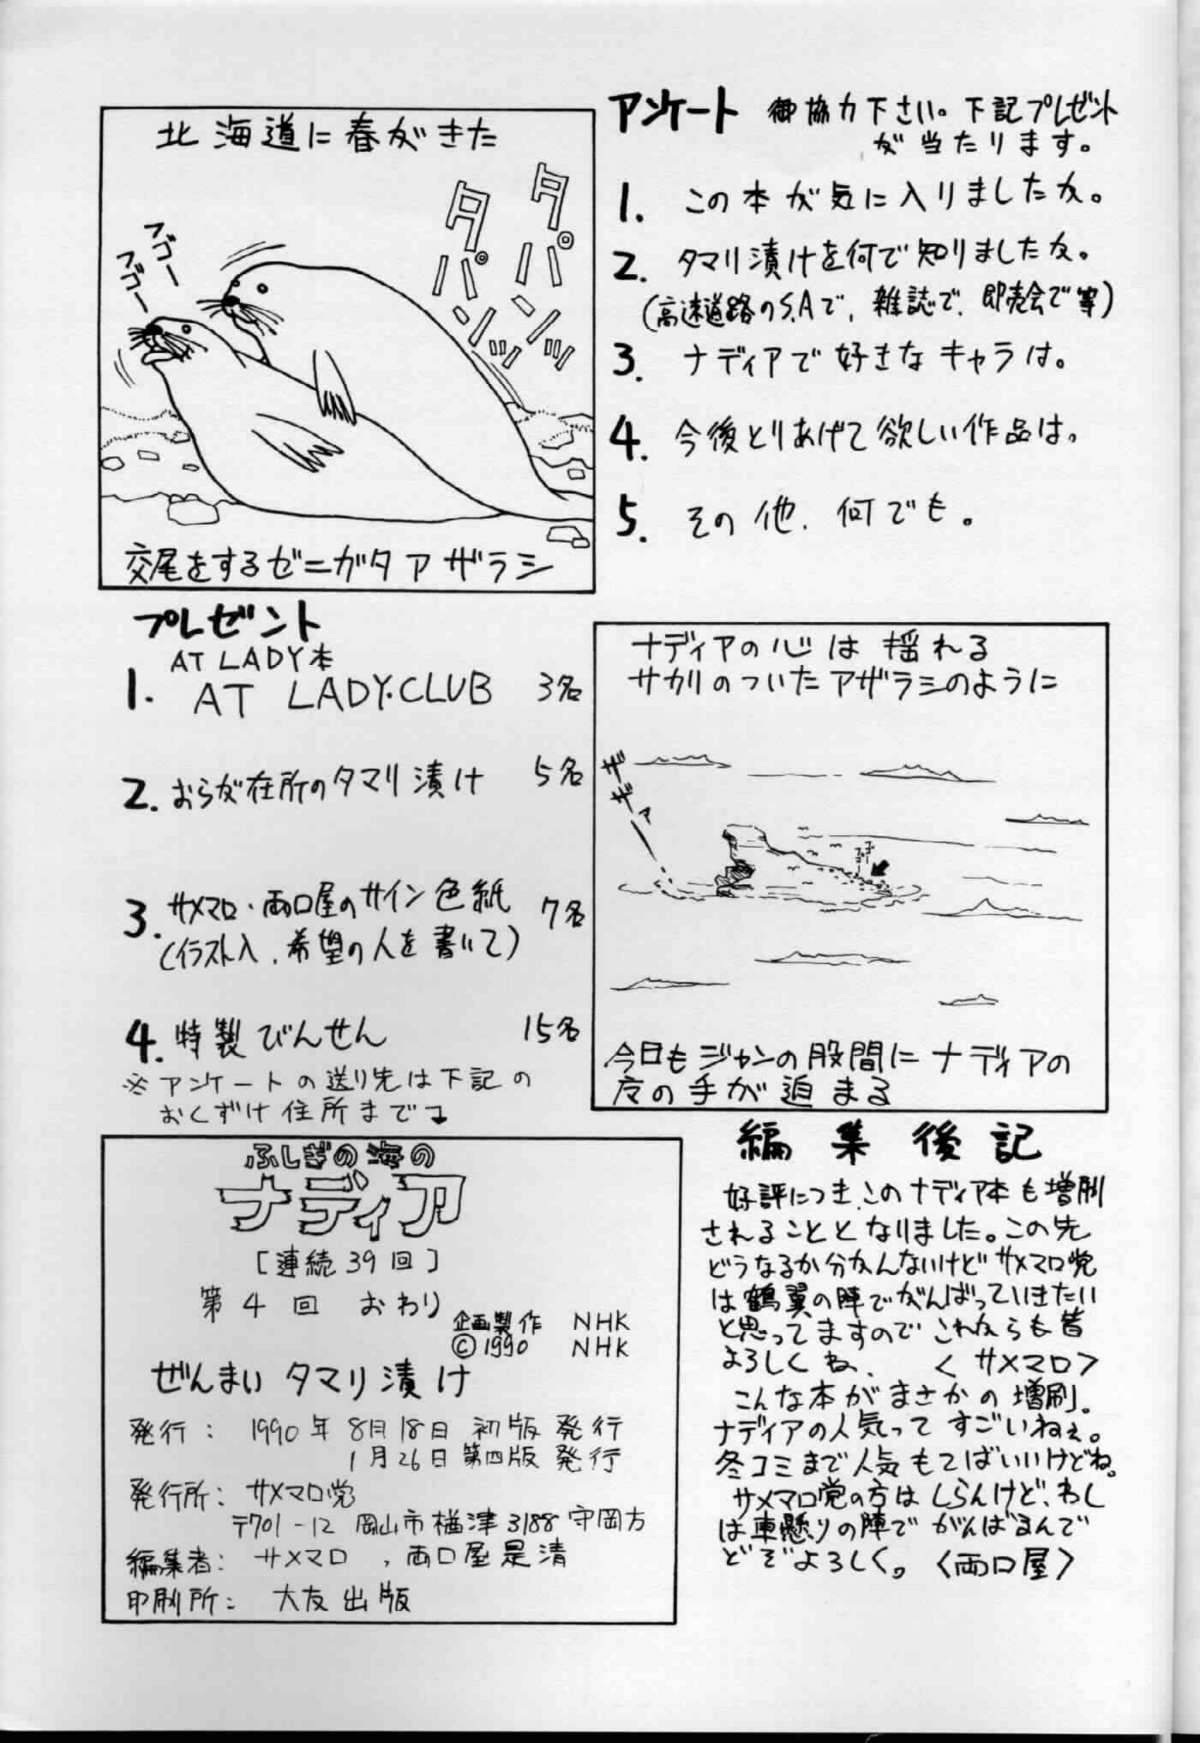 北海道に春がきた
タパンッ
タパンッ
フゴー
フゴー
交尾をするゼニガタアザラシ
アンケート 御協力下さい。下記プレゼント
が当たります。
1. この本が気に入りましたか。
2. タマリ漬けを何で知りましたか。
(高速道路のS.Aで、雑誌で、即売会で等)
3. ナディアで好きなキャラは。
4. 今後とりあげて欲しい作品は。
5. その他、何でも。
プレゼント
AT LADY本
1. AT LADY・CLUB 3名
2. おらが在所のタマリ漬け 5名
3. サメマロ・両口屋のサイン色紙 7名
(イラスト入、希望の人を書いて)
4. 特製びんせん 15名
※アンケートの送り先は下記の
おくずけ住所まで
ナディアの心は揺れる
サカリのついたアザラシのように
ザザァ
今日もジャンの股間にナディアの
の手が迫まる
ふしぎの海の
ナディア
[連続39回]
第4回 おわり
企画製作 NHK
©1990 NHK
ぜんまいタマリ漬け
発行: 1990年8月18日 初版発行
1月26日第四版発行
発行所: サメマロ党
〒701-12 岡山市楢津3188守岡方
編集者: サメマロ、両口屋是清
印刷所: 大友出版
編集後記
好評につき、このナディア本も増刷
されることとなりました。この先
どうなるか分かんないけどサメマロ党
は鶴翼の陣でがんばっていきたい
と思ってますのでこれからも皆
よろしくね、 <サメマロ>
こんな本がまさかの増刷。
ナディアの人気ってすごいねぇ。
冬コミまで人気もてばいいけどね。
サメマロ党の方はしらんけど、わし
は車懸りの陣でがんばるんで
どぞよろしく。〈両口屋〉